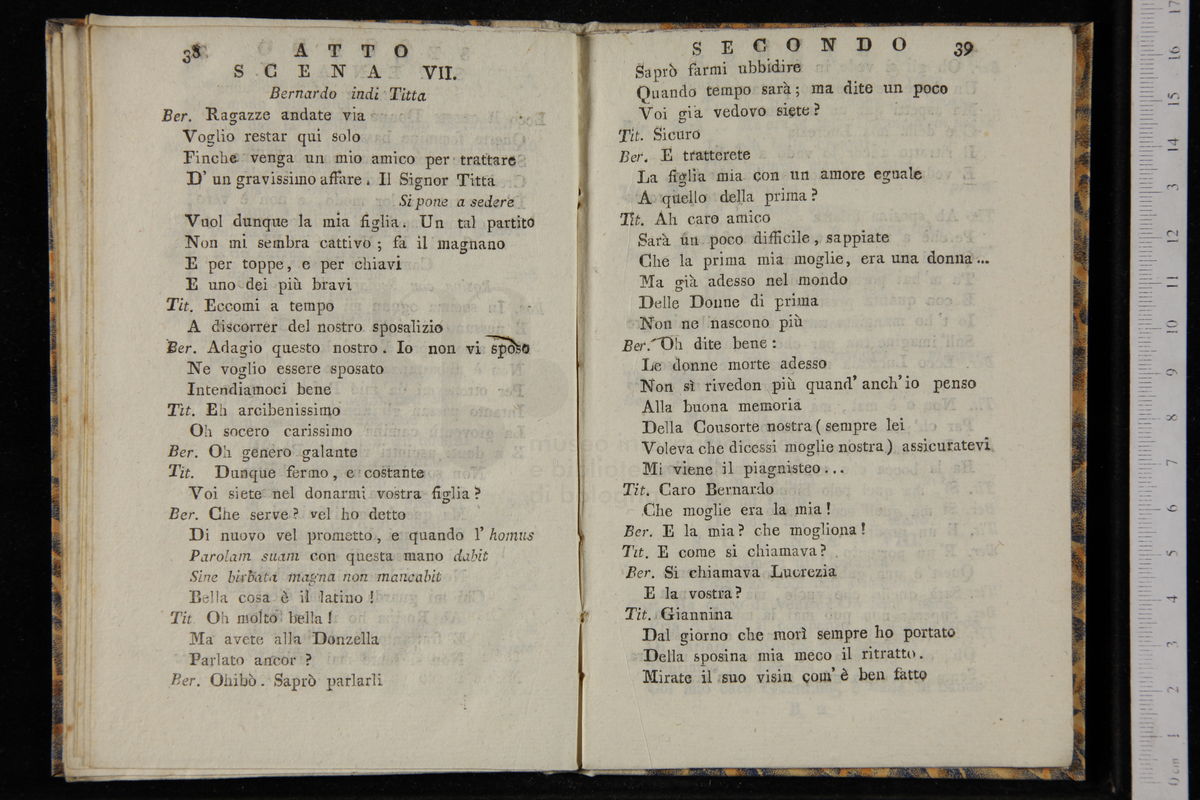 38 ATTO
SCENA VII.
Bernardo indi Titta
Ber. Ragazze andate via
Voglio restar qui solo
Finche venga un mio amico per trattare
D' un gravissimo affare. Il Signor Titta
Si pone a sedere
Vuol dunque la mia figlia. Un tal partito
Non mi sembra cattivo; fa il magnano
E per toppe, e per chiavi
E uno dei più bravi
Tit. Eccomi a tempo
A discorrer del nostro sposalizio
Ber. Adagio questo nostro. Io non vi sposo
Ne voglio essere sposato
Intendiamoci bene
Tit. Eh arcibenissimo
Oh socero carissimo
Ber. Oh genero galante
Tit. Dunque fermo, e costante
Voi siete nel donarmi vostra figlia?
Ber. Che serve? vel ho detto
Di nuovo vel prometto, e quando l' homus
Parolam suam con questa mano dabit
Sine birbata magna non mancabit
Bella cosa è il latino!
Tit Oh molto bella!
Ma avete alla Donzella
Parlato ancor?
Ber. Ohibò. Saprò parlarli
SECONDO 39
Saprò farmi ubbidire
Quando tempo sarà; ma dite un poco
Voi già vedovo siete?
Tit. Sicuro
Ber. E tratterete
La figlia mia con un amore eguale
A quello della prima?
Tit. Ah caro amico
Sarà un poco difficile, sappiate
Che la prima mia moglie, era una donna...
Ma già adesso nel mondo
Delle Donne di prima
Non ne nascono più
Ber. Oh dite bene:
Le donne morte adesso
Non sì rivedon più quand' anch' io penso
Alla buona memoria
Della Cousorte nostra (sempre lei
Voleva che dicessi moglie nostra) assicuratevi
Mi viene il piagnisteo...
Tit. Caro Bernardo
Che moglie era la mia!
Ber. E la mia? che mogliona!
Tit. E come si chiamava?
Ber. Si chiamava Lucrezia
E la vostra?
Tit. Giannina
Dal giorno che morì sempre ho portato
Della sposina mia meco il ritratto.
Mirate il suo visin com' è ben fatto